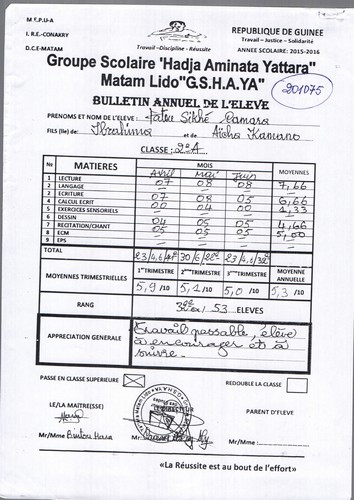 M.E.P.U-A
REPUBLIQUE DE GUINEE
I. R.E.-CONAKRY
Travail – Justice – Solidarité
D.C.E-MATAM
Travail –Discipline - Réussite
ANNEE SCOLAIRE: 2015-2016
Groupe Scolaire 'Hadja Aminata Yattara"
Matam Lido"G.S.H.A.YA"
201075
BULLETIN ANNUEL DE L'ELEVE
PRENOMS ET NOM DE L'ELEVE : Fatou Sikhé Camara
FILS (lle) de: Ibrahima et de Aïsha Kamano
CLASSE: 2e A
N° MATIERES MOIS MOYENNES
Avril Mai Juin
1 LECTURE
2 LANGAGE 07 08 08 7,66
3 ECRITURE
4 CALCUL ECRIT 07 08 05 6,66
5 EXERCICES SENSORIELS 00 04 00 1,33
6 DESSIN
7 RECITATION/CHANT 04 05 05 4,66
8 ECM 05 05 05 5,00
9 EPS
TOTAL 23/4,6 30/6 23/4,6
MOYENNES TRIMESTRIELLES 1er TRIMESTRE 2ème TRIMESTRE 3ème TRIMESTRE MOYENNE ANNUELLE
5,9 /10 5,1 /10 5,0 /10 5,3 /10
RANG 53 ELEVES
APPRECIATION GENERALE Travail passable, élève
à encourager et à
suivre.
PASSE EN CLASSE SUPERIEURE
REDOUBLE LA CLASSE
LE/LA MAITRE(SSE)
LE DIRECTEUR
PARENT D'ELEVE
Mr/Mme Bintou Hawa
Mr/Mme
Mr/Mme :
«La Réussite est au bout de l'effort»